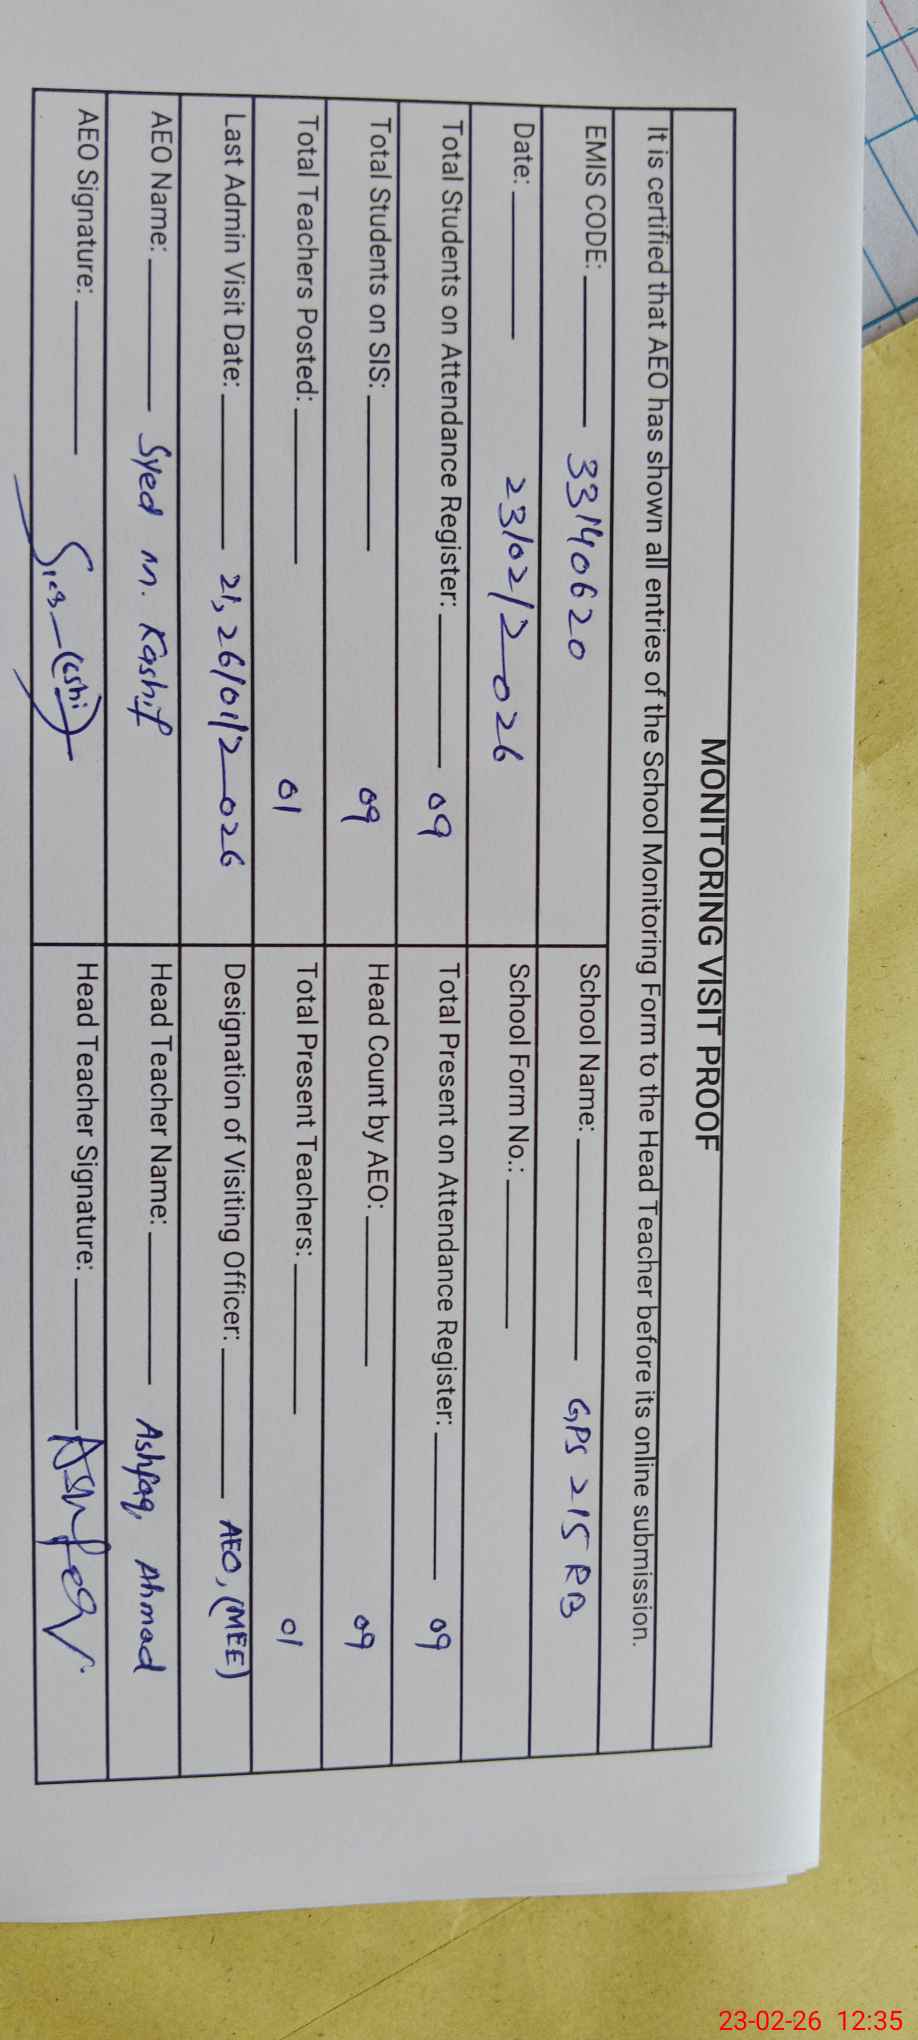 MONITORING VISIT PROOF
It is certified that AEO has shown all entries of the School Monitoring Form to the Head Teacher before its online submission.
EMIS CODE: 33140620 School Name: GPS 215 RB
Date: 23/02/2026 School Form No.:
Total Students on Attendance Register: 09 Total Present on Attendance Register: 09
Total Students on SIS: 09 Head Count by AEO: 09
Total Teachers Posted: 01 Total Present Teachers: 01
Last Admin Visit Date: 21, 26/01/2026 Designation of Visiting Officer: AEO, (MEE)
AEO Name: Syed M. Kashif Head Teacher Name: Ashfaq Ahmad
AEO Signature: Head Teacher Signature: Ashfaq
23-02-26 12:35